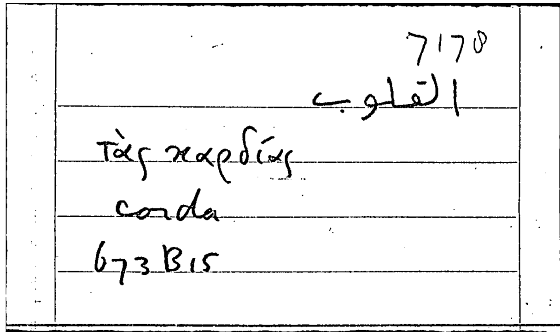 7178
القلوب
τὰς καρδίας
corda
673B15